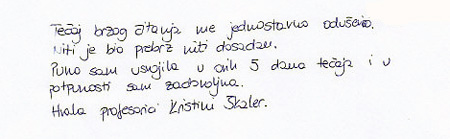 Tečaj brzog čitanja me jednostavno oduševio.
Niti je bio prebrz niti dosadan.
Puno sam usvojila u ovih 5 dana tečaja i u
potpunosti sam zadovoljna.
Hvala profesorici Kristini Škaler.